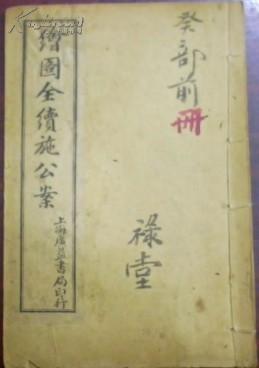 癸部前
冊
祿堂
繪圖全續施公案
上海廣益書局印行